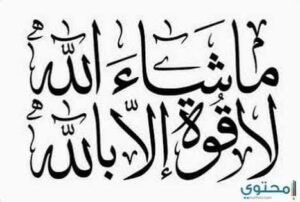 ما شاءَ اللّٰه
لا قوة إلاّ بالله
محتوى